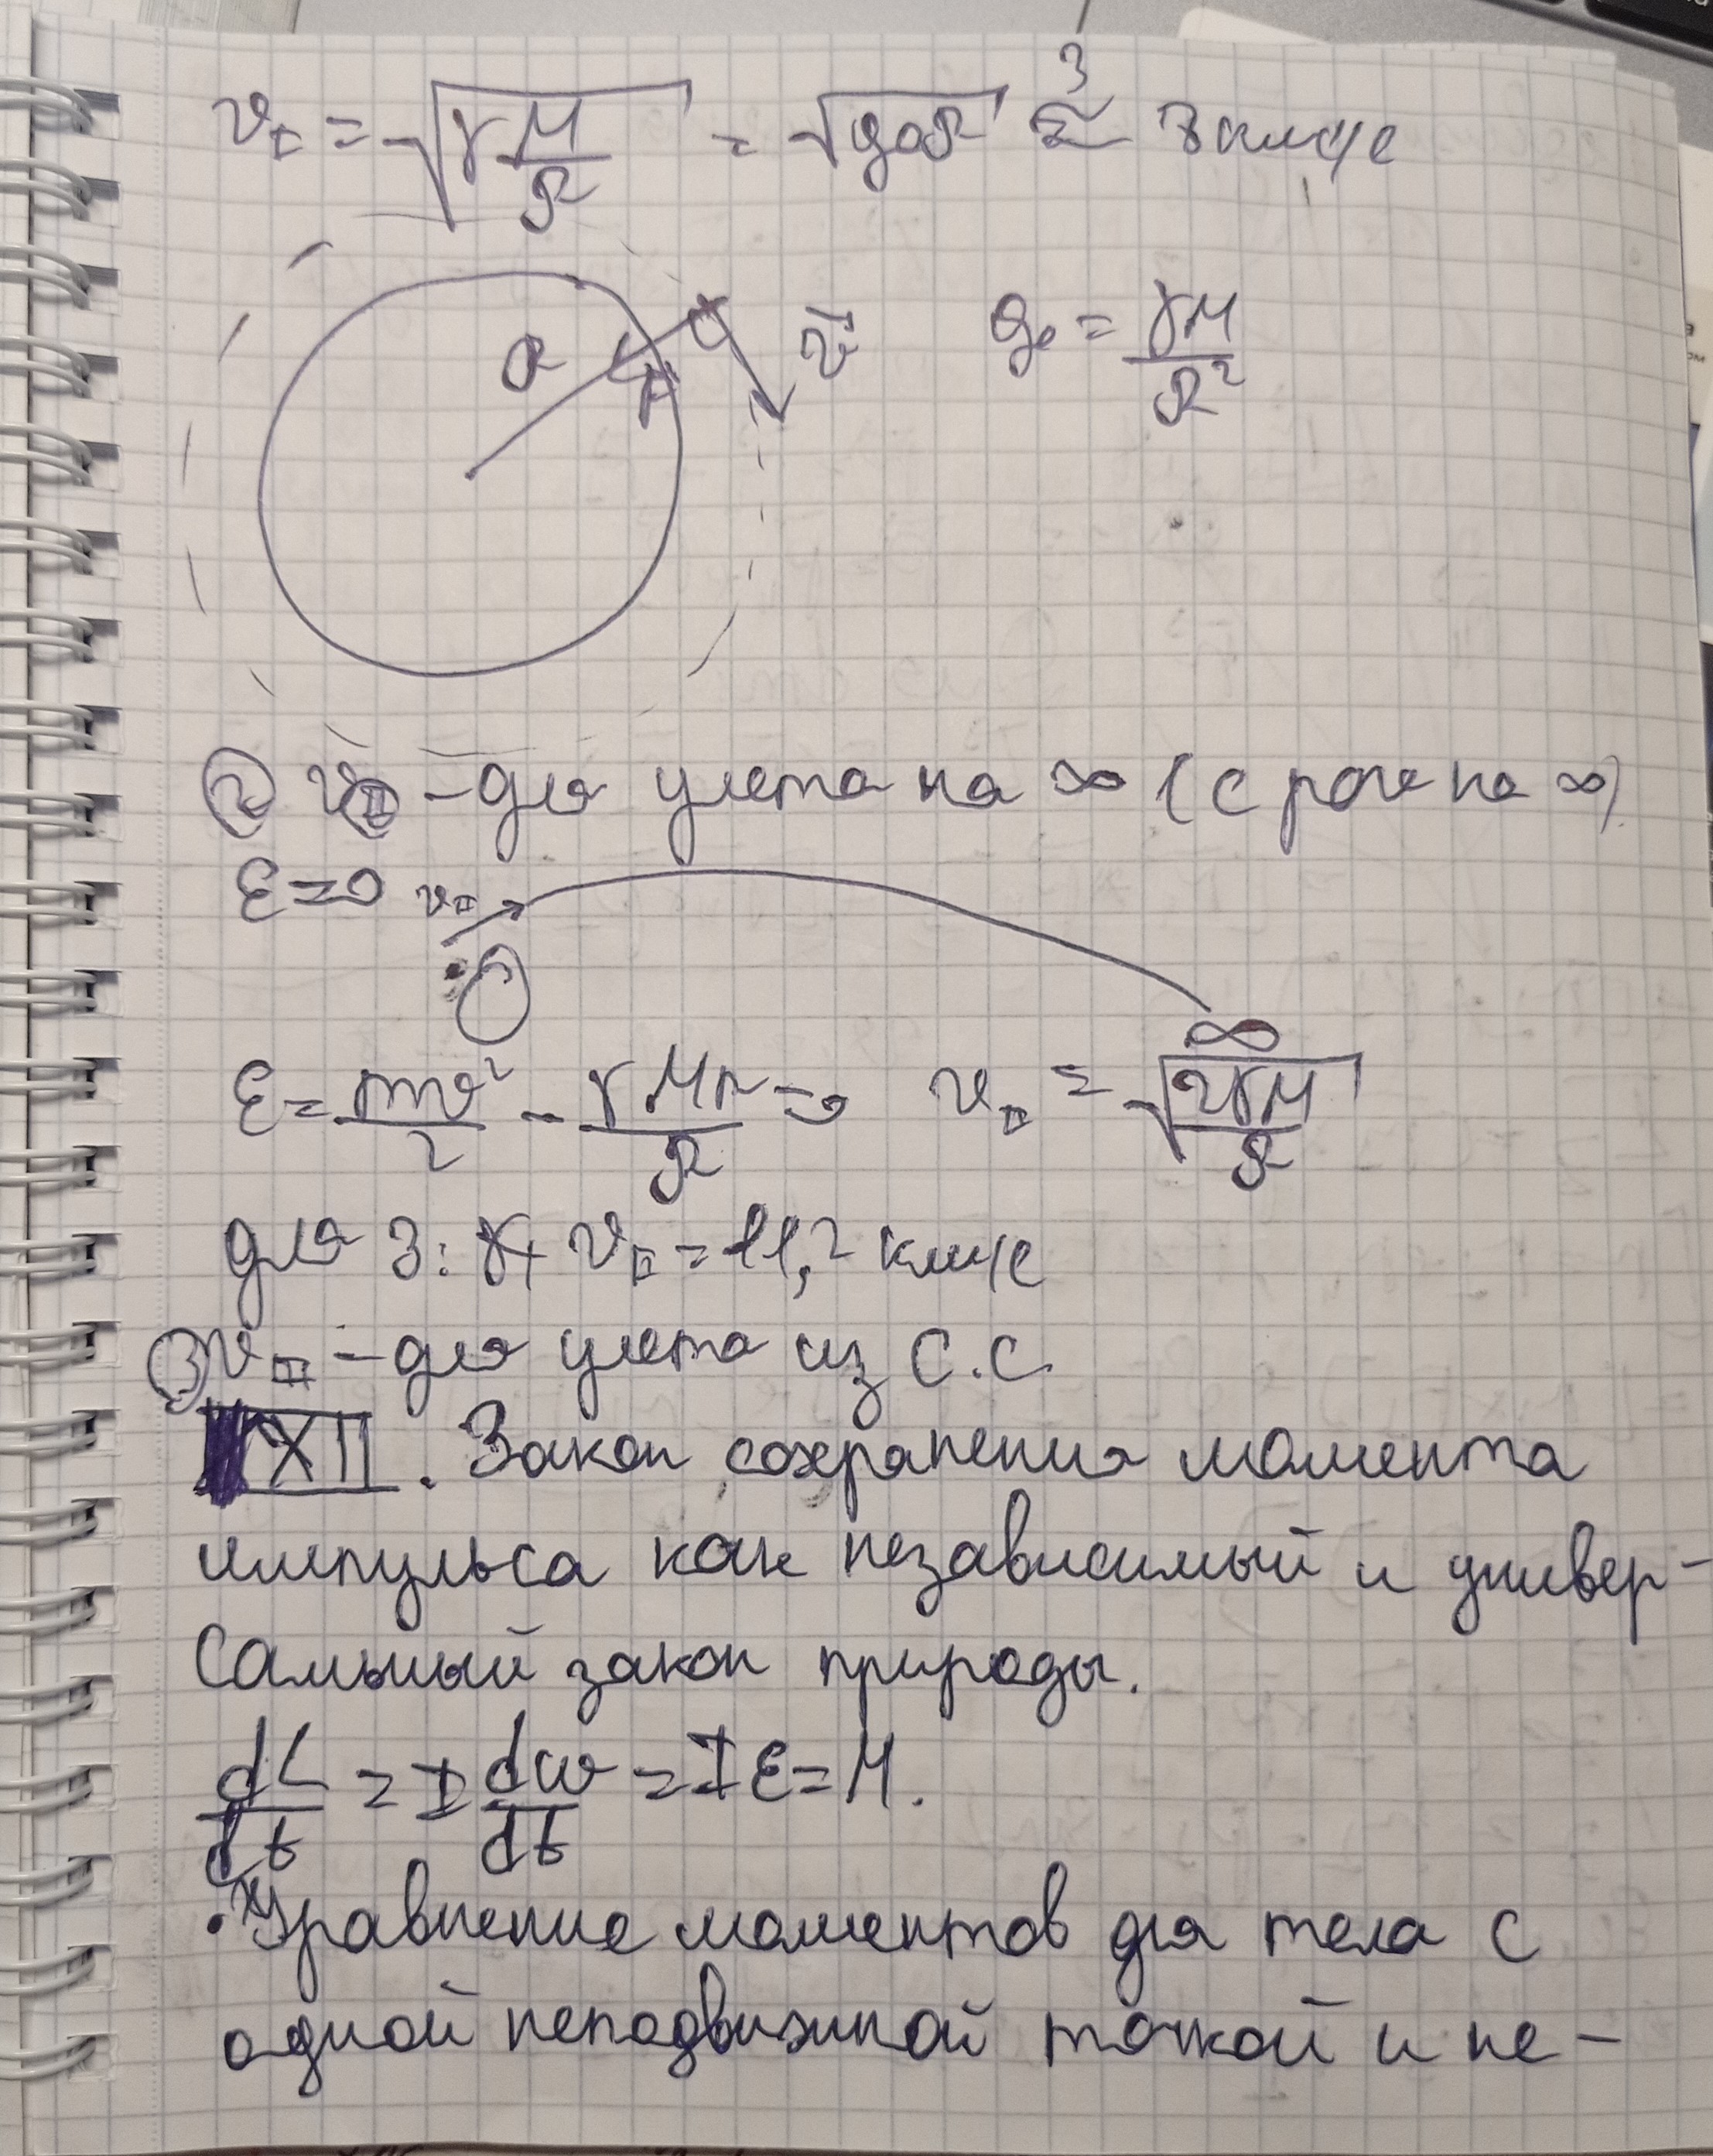 v_I = √(γ M/R) = √(g₀R) ≅ 8 км/с
З
R h v_I g₀ = γM/R²
② v_II – для улета на ∞ (с пов. на ∞)
ε=0 v_II
∞
ε = mv²/2 – γMm/R = 0 v_II = √(2γM/R)
для З: v_II = 11,2 км/с
③ v_III – для улета из С.С.
XII. Закон сохранения момента
импульса как независимый и универ-
сальный закон природы.
dL/dt = I dω/dt = Iε = M.
• Уравнение моментов для тела с
одной неподвижной точкой и не-